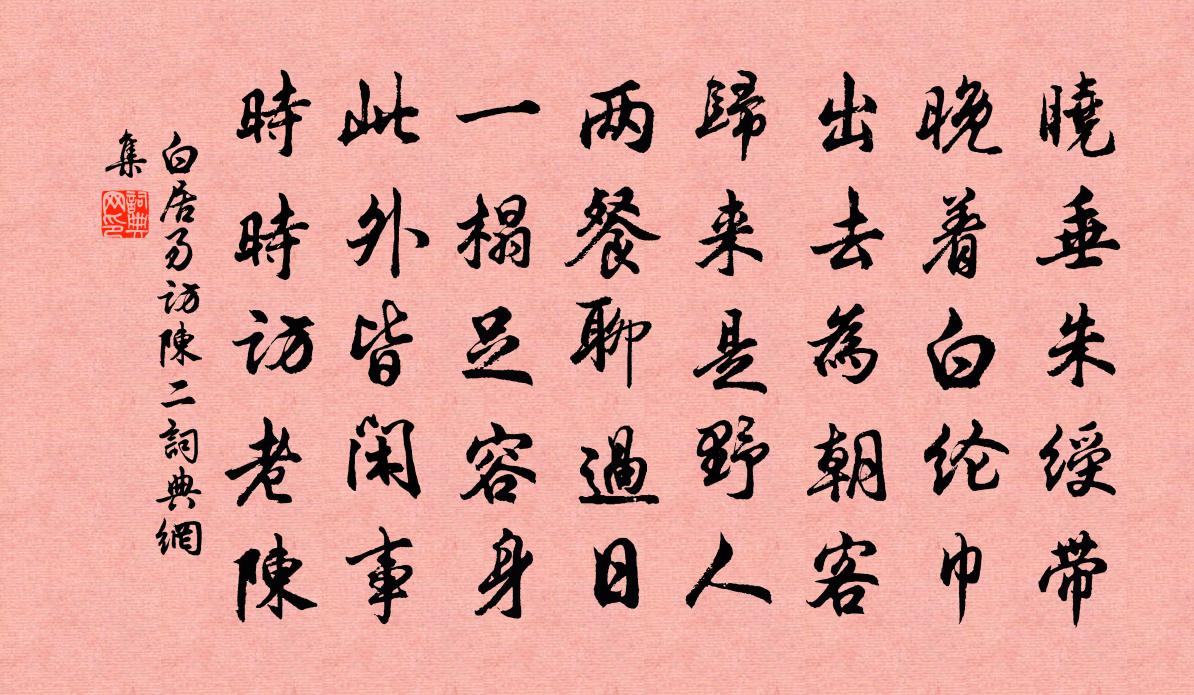 曉垂朱綬带
晚着白纶巾
出去為朝客
歸来是野人
两餐聊過日
一榻足容身
此外皆闲事
時時訪老陳
白居易訪陳二詞典網
集
詞典网印